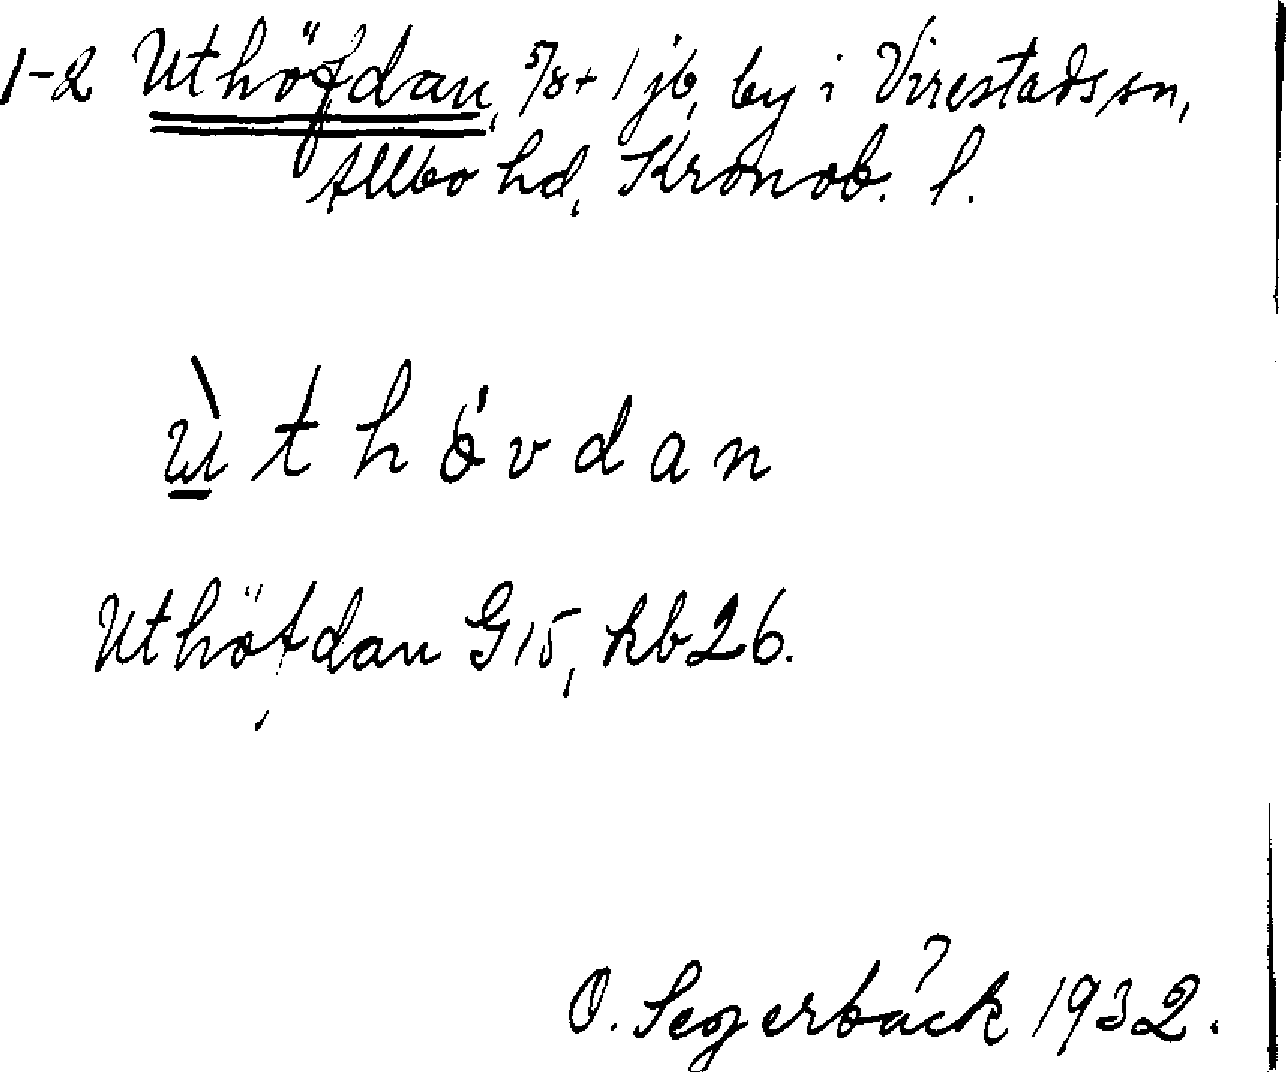 1-2 Uthöfdan, 5/8 + 1 jb, by i Virestads sn,
Allbo hd, Kronob. l.
ùthövdan
Uthöfdan G15, kb26.
O. Segerbäck 1932.